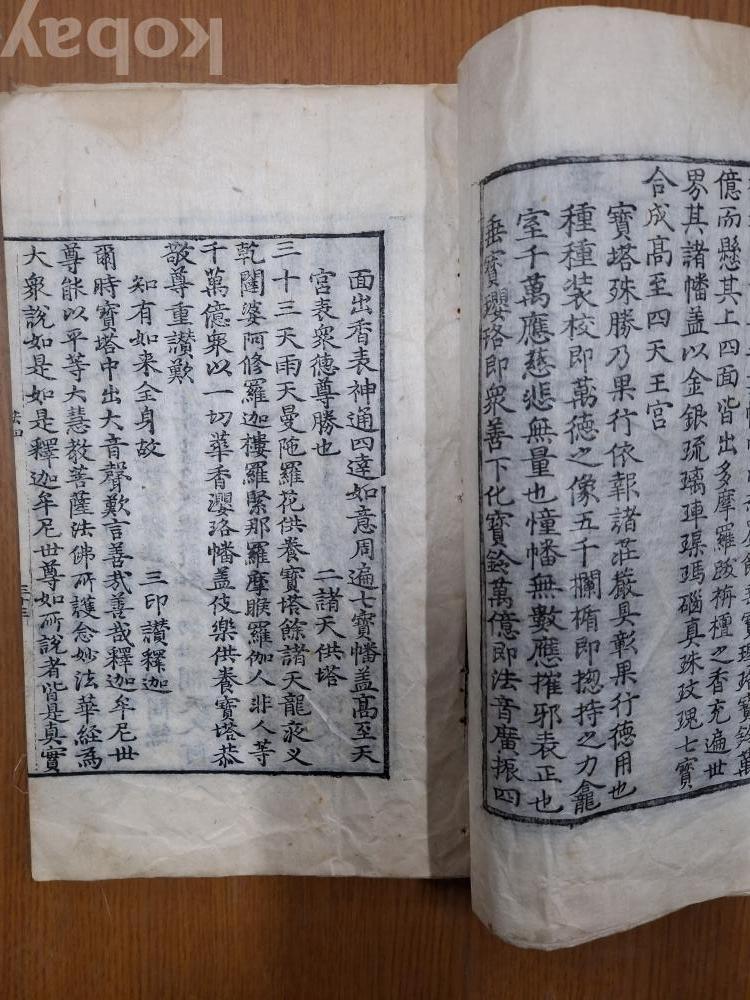 寶瓔珞寶鈴萬
億而懸其上四面皆出多摩羅跋栴檀之香充遍世
界其諸幡盖以金銀琉璃硨磲瑪瑙真珠玫瑰七寶
合成高至四天王宮
寶塔殊勝乃果行依報諸莊嚴具彰果行德用也
種種装校即萬德之像五千欄楯即揔持之力龕
室千萬應慈悲無量也憧幡無數應摧邪表正也
垂寶瓔珞即衆善下化寶鈴萬億即法音廣振四
面出香表神通四達如意周遍七寶幡盖高至天
宮表衆德尊勝也 二諸天供塔
三十三天雨天曼陁羅花供養寶塔餘諸天龍夜义
乾闥婆阿修羅迦樓羅緊那羅摩睺羅伽人非人等
千萬億衆以一切華香瓔珞幡盖伎樂供養寶塔恭
敬尊重讃歎
知有如来全身故 三印讃釋迦
爾時寶塔中出大音聲歎言善㢤善㢤釋迦牟尼世
尊能以平等大慧教菩薩法佛所護念妙法華經爲
大衆說如是如是釋迦牟尼世尊如所說者皆是真實
法四
三十三
kobay